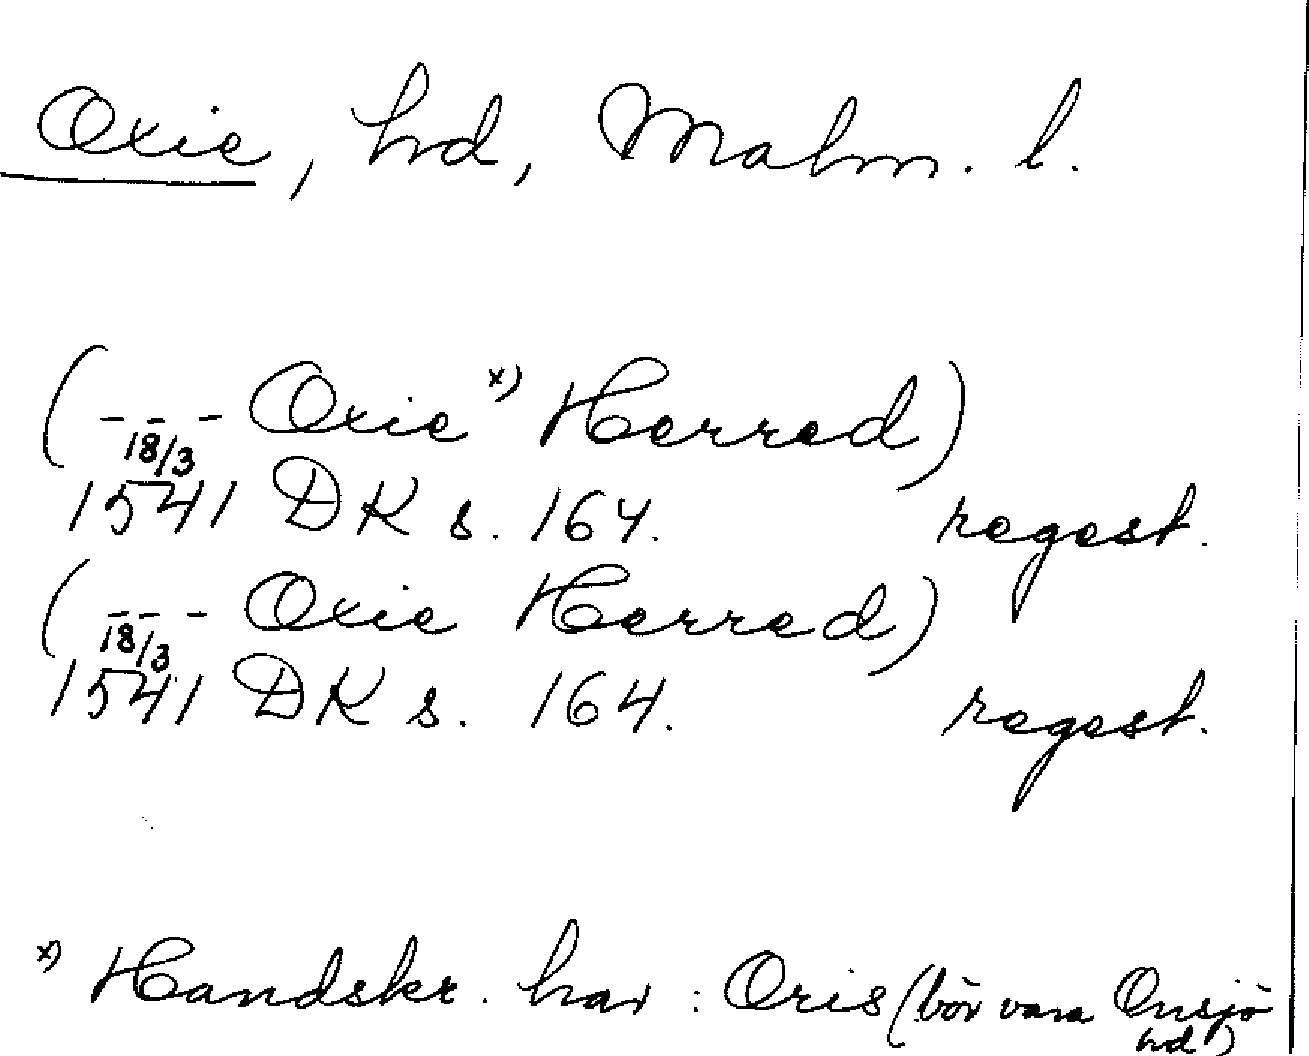 Oxie, hd, Malm. l.
(--- Oxie x) Herred)
18/3
1541 DK s. 164. regest.
(--- Oxie Herred)
18/3
1541 DK s. 164. regest.
x) Handskr. har: Oris (bör vara Onsjö
hd)